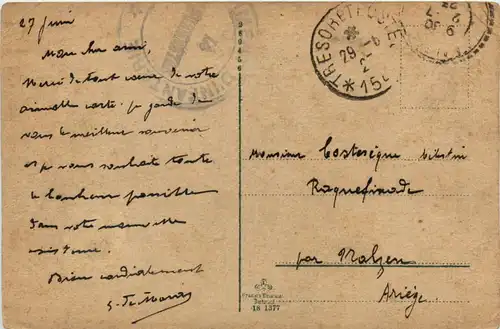 27 Juin
Mon cher ami,
Merci de tout cœur de votre
aimable carte. Je garde de
vous le meilleur souvenir
et je vous souhaite toute
le bonheur possible
dans votre nouvelle
existence.
Bien cordialement
TRESOR ET POSTES
29 - 6
* 15
Monsieur Costesèque Célestin
Roquefixade
par Nalzen
Ariège
18 1377